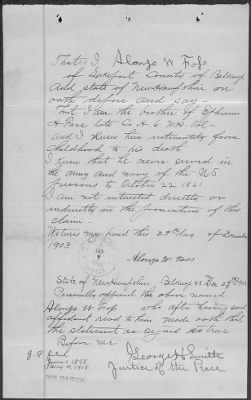 That I Alonzo W Foss
of        County of Belknap
And state of New Hampshire on
oath depose and say
that I am the brother of Ephraim
A Foss late Co A 6 N H
and I knew him intimately from
Childhood to his death
I know that he never served in
the army and navy of the U S
previous to October 22 1861
I am not interested directly or
indirectly in the prosecution of this
claim
Witness my hand this 29th day of December
1903
Alonzo W Foss
State of New Hampshire Belknap ss Dec 29th 1903
Personally appeared the above named
Alonzo W Foss who after having said
affidavit read to him made oath that
the statement as signed is true
Before me
George H Smith
Justice of the Peace
J. P. filed